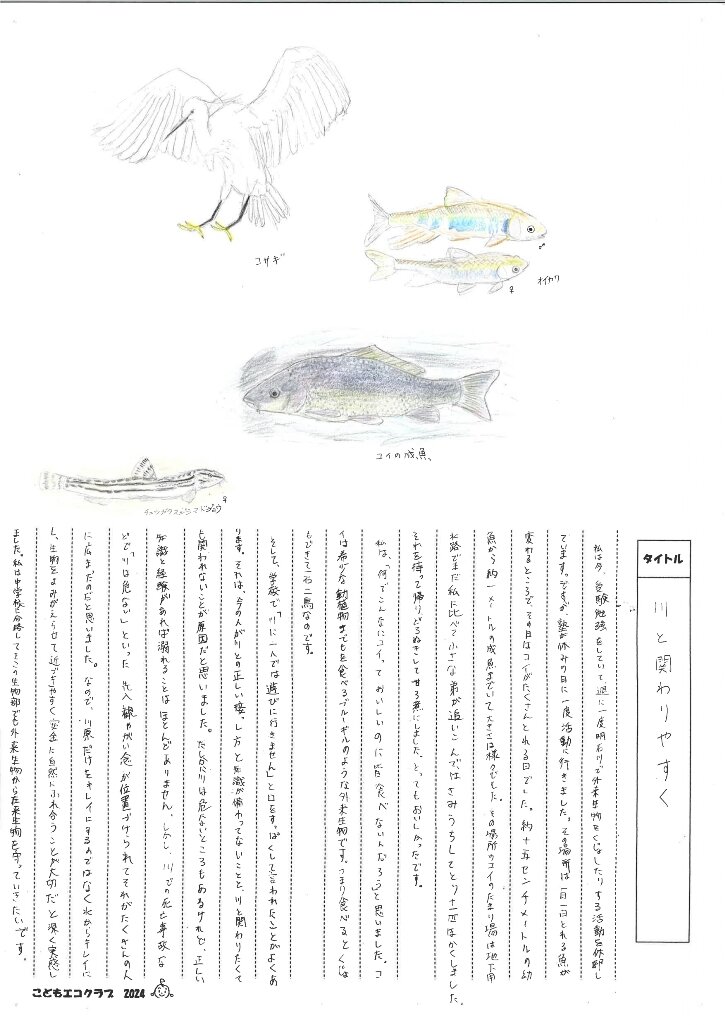 コサギ
オイカワ
♂
♀
コイの成魚
♀
タイトル
川と関わりやすく
私は今、受験勉強をしていて週に一度明石川で外来生物をくじょしたりする活動を休部し
ています。ですが、塾が休みの日に一度活動に行きました。その場所は一日一日とれる魚が
変わるところで、その日はコイがたくさんとれる日でした。約十五センチメートルの幼
魚から約一メートルの成魚までいて大きさは様々でした。その場所のコイのたまり場は地下用
水路でまだ私に比べて小さな弟が追いこんではさみうちしてとり十一匹ほかくしました。
それを持って帰りどろぬきして甘ろ煮にしました。とってもおいしかったです。
私は、「何でこんなにコイっておいしいのに皆食べないんだろう」と思いました。コ
イは希少な動植物までもを食べるブルーギルのような外来生物です。つまり食べるとくじょ
もできて一石二鳥なのです。
そして、学校で「川に一人では遊びに行きません」と口をすっぱくして言われたことがよくあ
ります。それは、今の人が川との正しい接し方と知識が備わってないことと、川と関わりたくて
も関われないことが原因だと思いました。たしかに川は危ないところもあるけれど、正しい
知識と経験があれば溺れることはほとんどありません。しかし、川での死亡事故な
どで「川は危ない」といった先入観やがい念が位置づけられてそれがたくさんの人
に広まったのだと思いました。なので、川原だけをキレイにするのではなく水からキレイに
し、生物をよみがえらせて近づきやすく安全に自然にふれ合うことが大切だと深く実感し
ました。私は中学校に合格してその生物部でも外来生物から在来生物を守っていきたいです。
こどもエコクラブ 2024